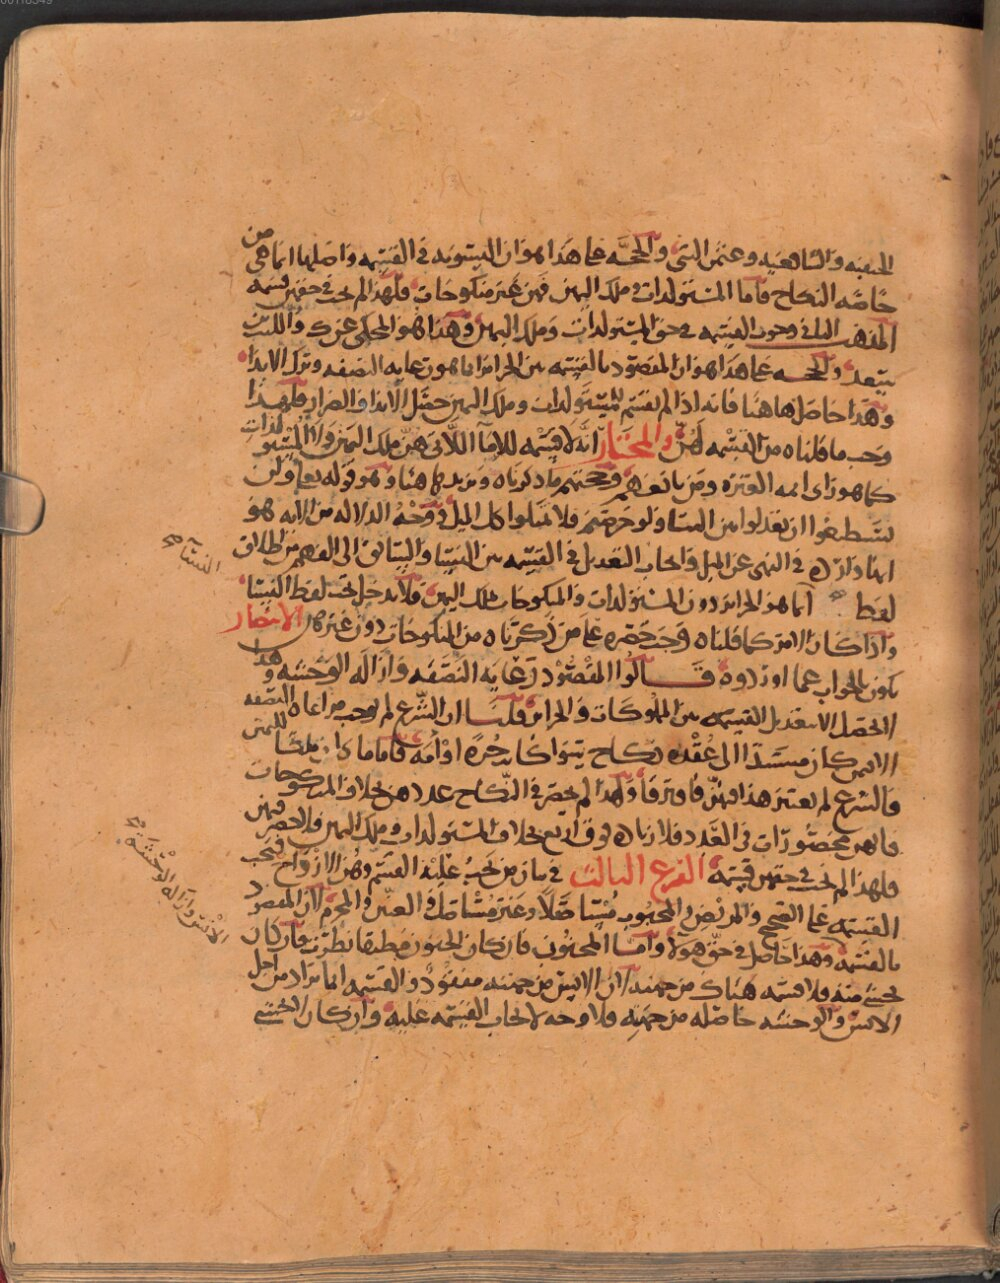 الحنفيه والشافعيه وعثمن البتي والحجه على هذا هو ان التسويه في القسمه واصلها انما هي من
خاصه النكاح فاما المستولدات وملك اليمين فهن غير منكوحات فلهذا لم تجب في حقهن قسمه
المذهب الثاني وجوب القسمه في حق المستولدات وملك اليمين وهذا هو المحكي عن ك والليث بن
سعد والحجه على هذا هو ان المقصود بالقسمه بين الحرائر انما هو رعايه النصفه وترك الايذا
وهذا حاصل هاهنا فانه اذا لم يقسم للمستولدات وملك اليمين حصل الايذا والضرار فلهذا
وجب ما قلناه من القسمه لهن والمختار انه لا قسمه للاما اللاتي هن ملك اليمين ولا المستولدات
كما هو راى ايمه العتره ومن تابعهم وحجتهم ما ذكرناه ونزيد هاهنا وهو قوله تعالى ولن
تستطيعوا ان تعدلوا بين النسا ولو حرصتم فلا تميلوا كل الميل ووجه الدلاله من الايه هو
انها وارده في النهي عن الميل وايجاب التعديل في القسمه بين النسا والسابق الى الفهم من اطلاق
لفظ انما هو الحرائر دون المستولدات والمنكوحات بملك اليمين فلا يدخل تحت لفظ النسا
النسا صح
واذا كان الامر كما قلناه وجب حصره على من ذكرناه من المنكوحات دون غيرهن الانتصار
يكون بالجواب عما اوردوه قالوا المقصود رعايه النصفه وازاله الوحشه وهذا
لا يحصل الا بتعديل القسمه بين المملوكات والحرائر قلنا ان الشرع لم يوجب مراعاه النصفه
الا لمن كان مستندا الى عقده نكاح سوا كانت حره او امه فاما ما كان ملكا لليمين
فالشرع لم يعتبر هذا فيهن فافترقا ولهذا لم يحصر في النكاح عددهن بخلاف المنكوحات
فانهن محصورات في العدد فلا زياده فوق اربع بخلاف المستولدات وملك اليمين فلا حصر فيهن
فلهذا لم تجب في حقهن قسمه الفرع الثالث في بيان من تجب عليه القسم وهن الازواج فتجب
القسمه على الصحيح والمريض والمجبوب مستاصلا وغير مستاصل والعنين والمحرم لان المقصود
الانس وازاله الوحشه صح
بالقسمه وهذا حاصل في حق هولا واما المجنون فان كان الجنون مطبقا نظرت فان كان
يخشى منه فلا قسمه هناك من جهته لان الانس من جهته مفقود والقسمه انما تراد من اجل
الانس والوحشه حاصله من جهته فلا وجه لايجاب القسمه عليه وان كان لا يخشى